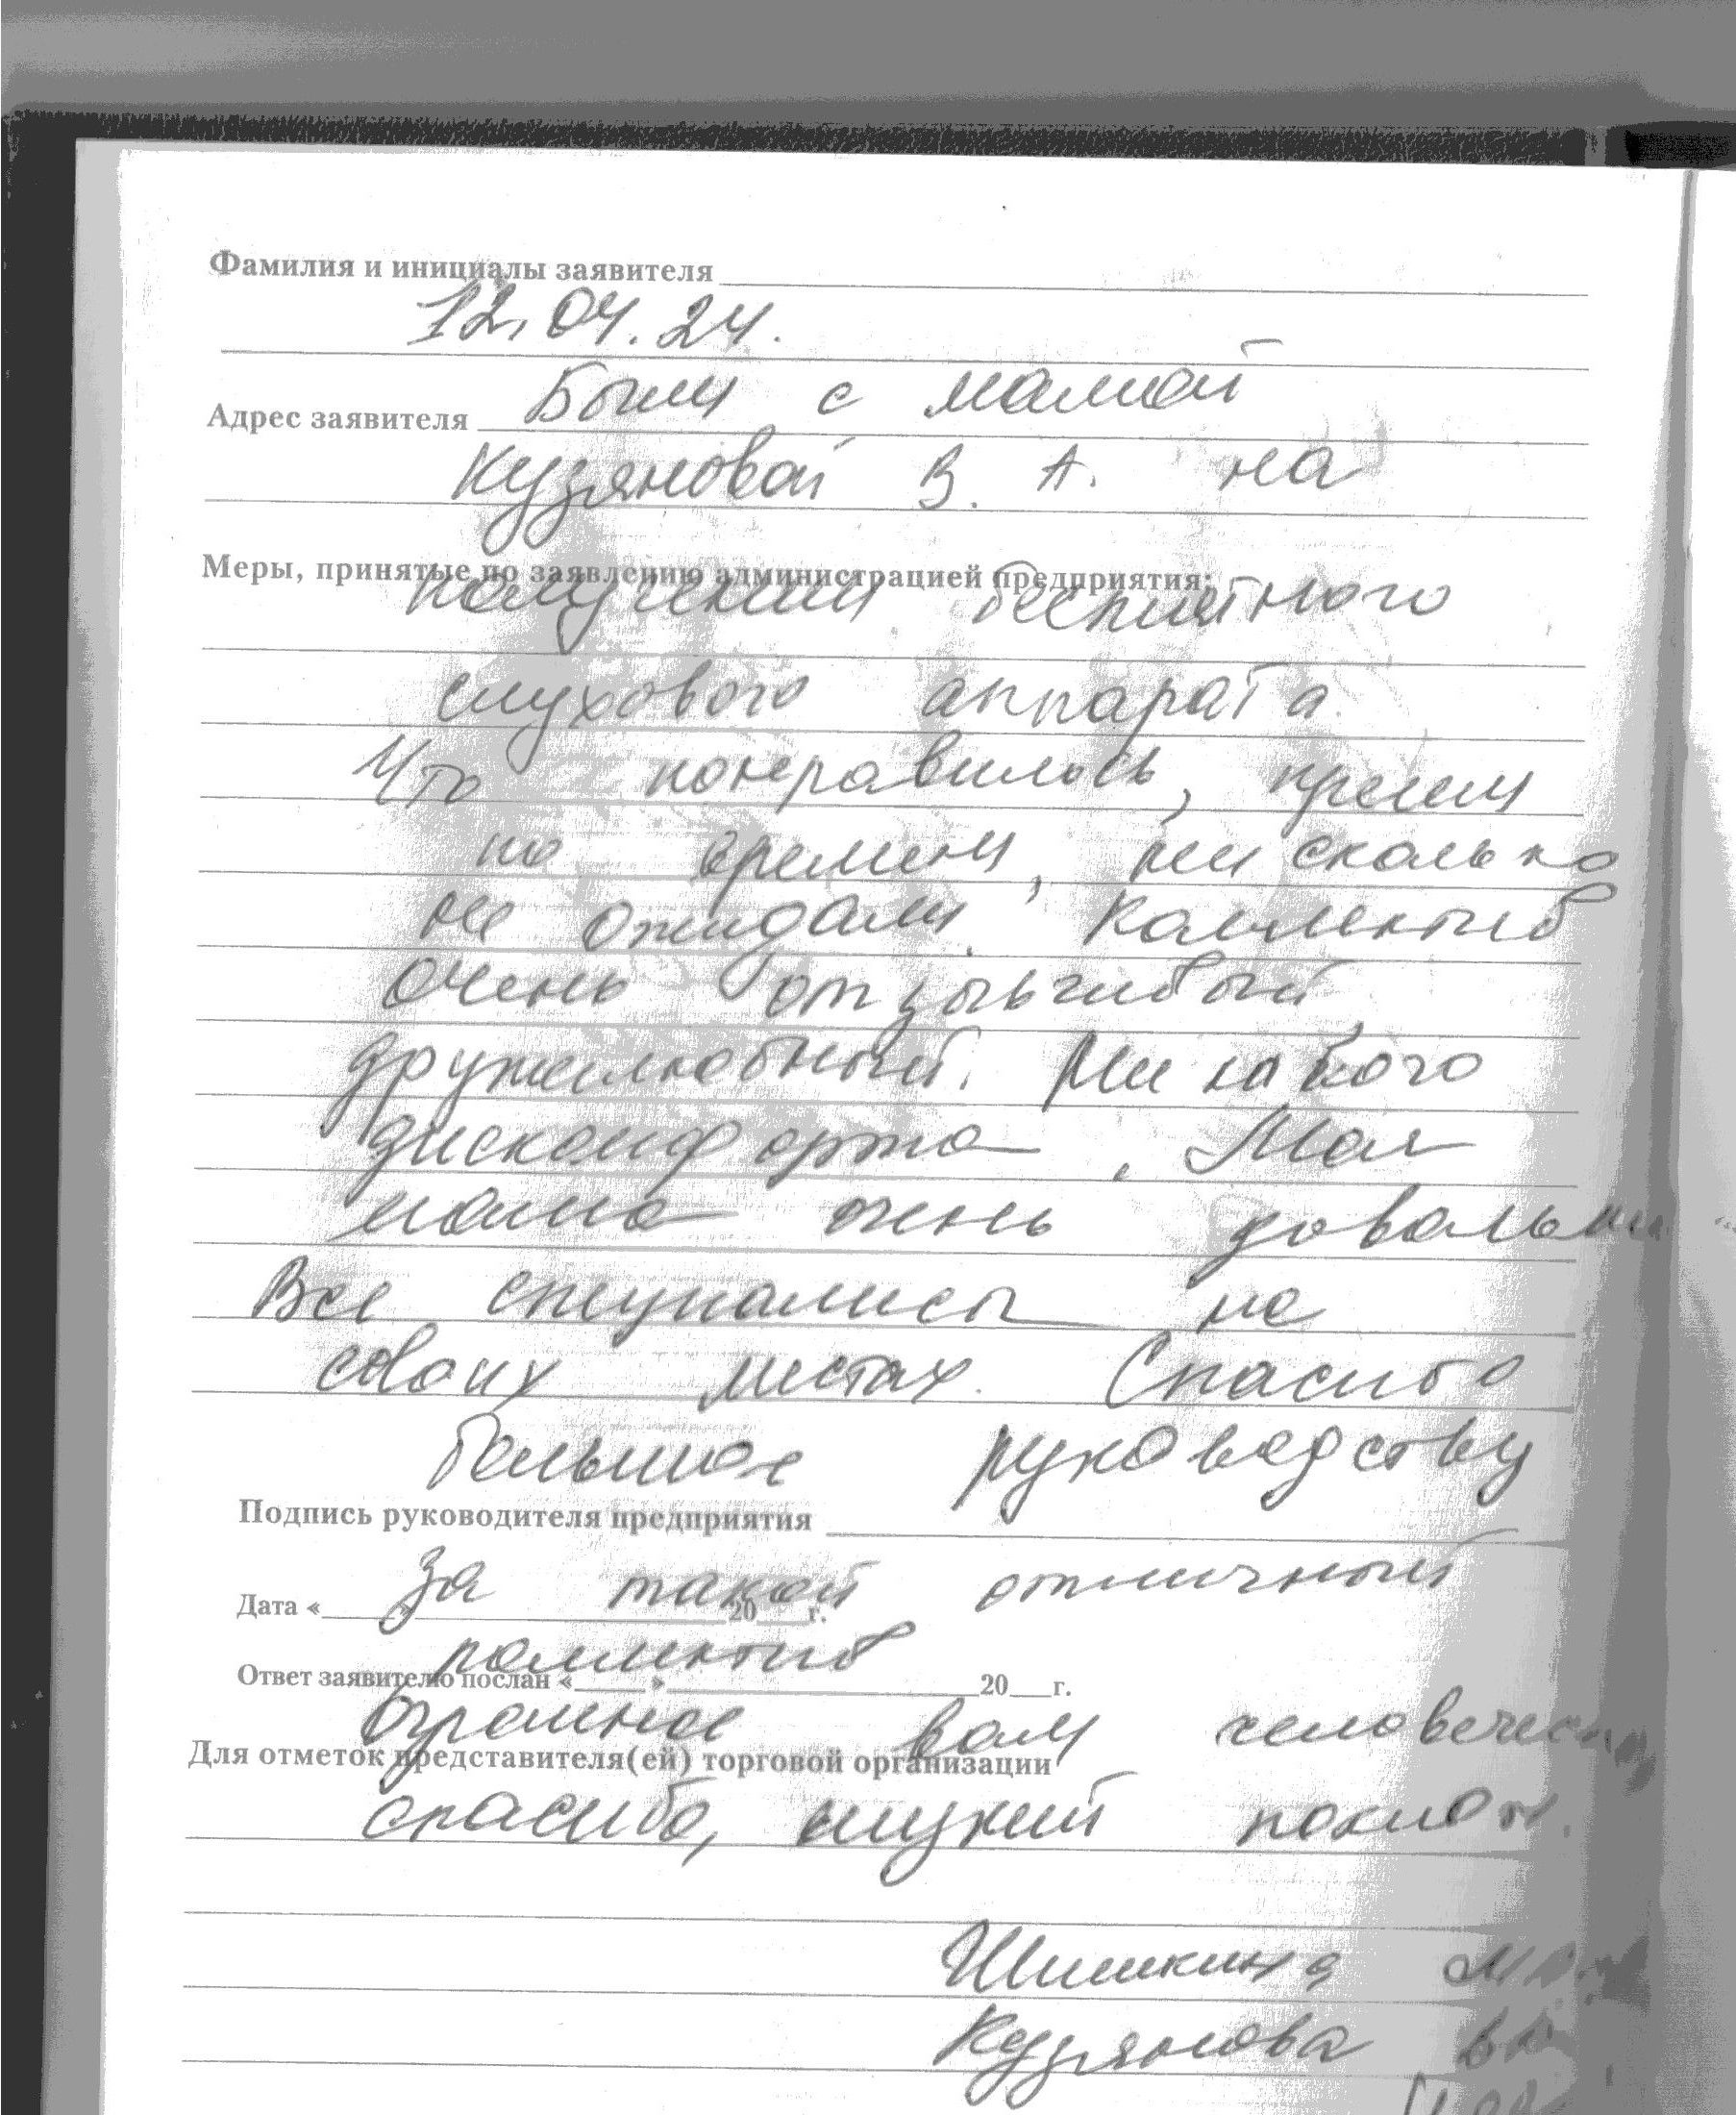 Фамилия и инициалы заявителя
12.04.24.
Были с мамой
Адрес заявителя
Кузяновой В. А. на
Меры, принятые по заявлению администрацией предприятия:
получении бесплатного
слухового аппарата.
Что понравилось, прием
по времени, ни сколько
не ожидали. Коллектив
очень отзывчивый,
дружелюбный. Ни какого
дискомфорта. Моя
мама очень довольна
Все специалисты на
своих местах. Спасибо
большое руководству
Подпись руководителя предприятия
за такой отличный
Дата « » 20 г.
коллектив
Ответ заявителю послан « » 20 г.
огромное вам
Для отметок представителя(ей) торговой организации
спасибо, низкий поклон.
Шишкина
Кузянова